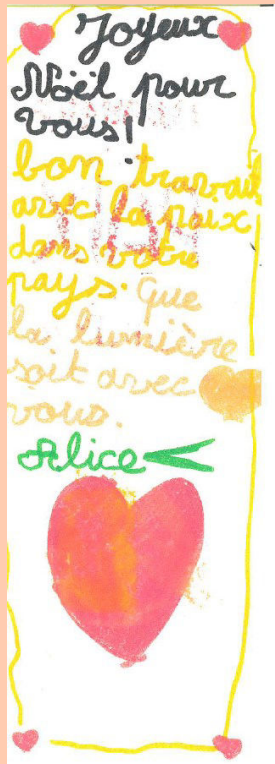 Joyeux
Noël pour
vous!
bon travail
avec la paix
dans votre
pays. Que
la lumière
soit avec
vous.
Alice